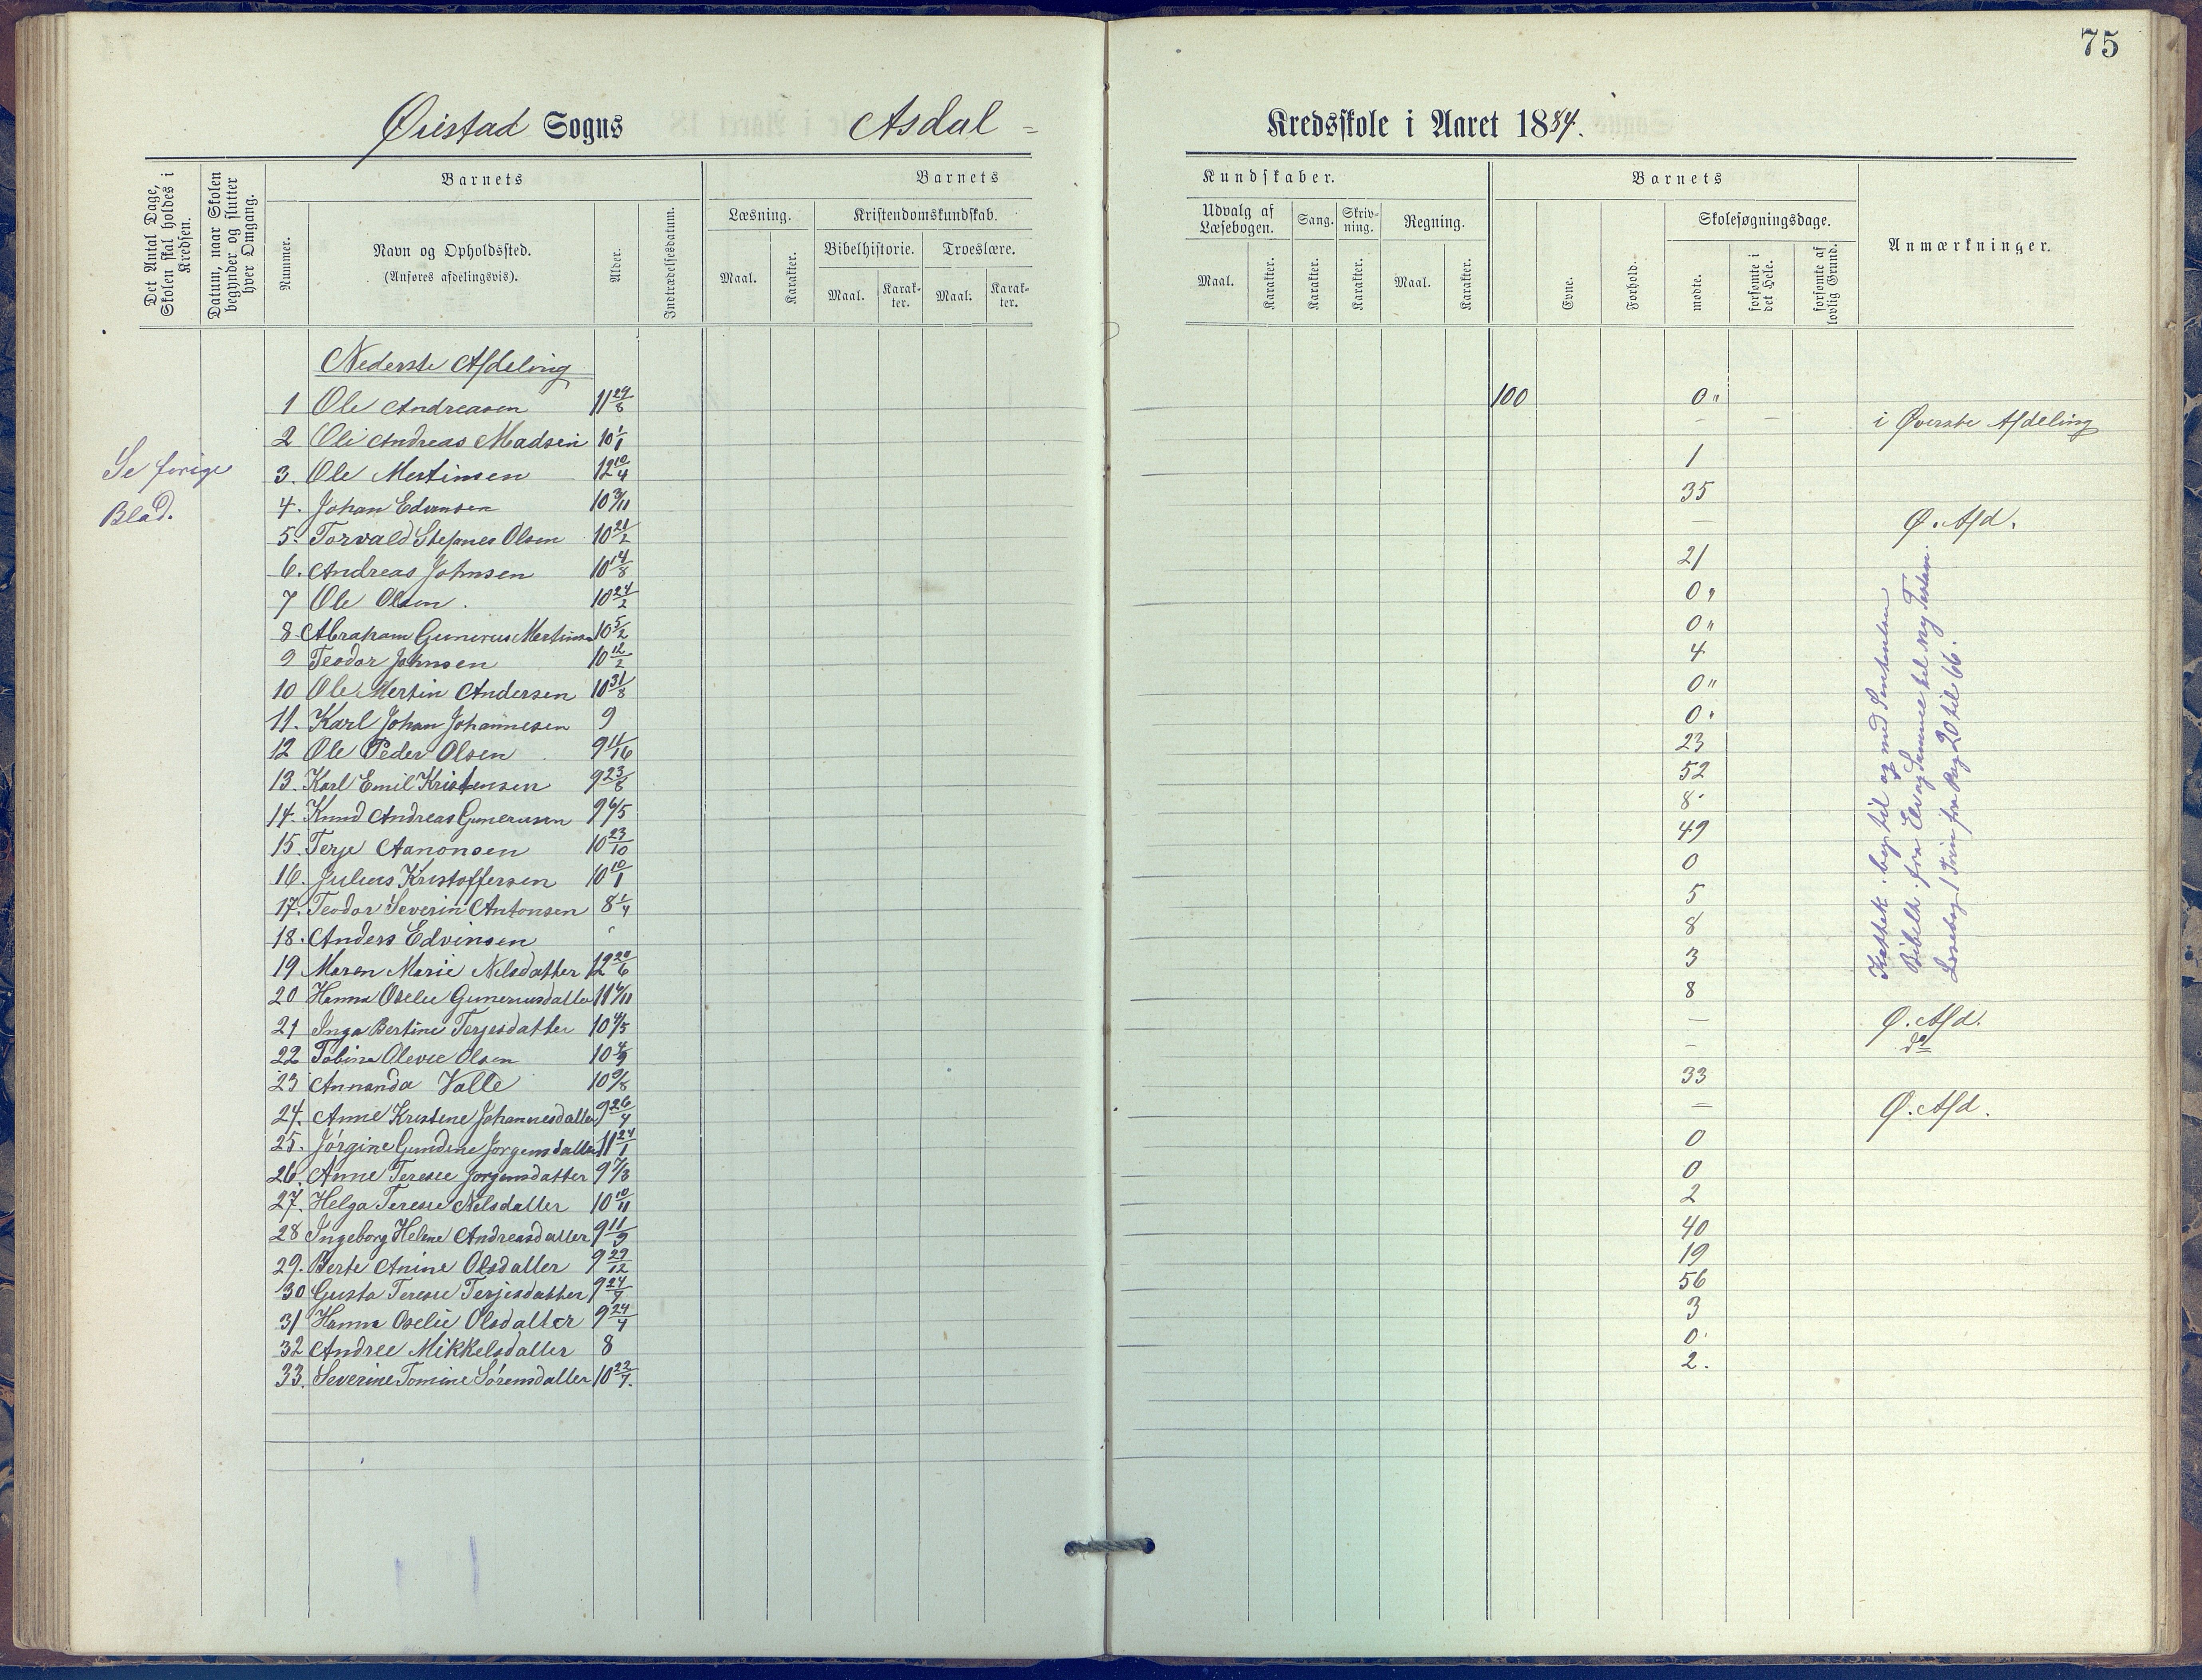 75
Øiestad Sogns Asdal = Kredsskole i Aaret 1884.
Det Antal Dage, Skolen skal holdes i Kredsen.
Datum, naar Skolen begynder og slutter hver Omgang.
Barnets
Nummer.
Navn og Opholdssted.
(Anføres afdelingsvis).
Alder.
Indtrædelsesdatum.
Barnets Kundskaber.
Læsning.
Maal.
Karakter.
Kristendomskundskab.
Bibelhistorie.
Maal.
Karakter.
Troeslære.
Maal.
Karakter.
Udvalg af Læsebogen.
Maal.
Karakter.
Sang.
Karakter.
Skrivning.
Karakter.
Regning.
Maal.
Karakter.
Barnets
Evne.
Forhold.
Skolesøgningsdage.
mødte.
forsømte i det Hele.
forsømte af lovlig Grund.
Anmærkninger.
Se forige
Blad.
Nederste Afdeling
1 Ole Andreasen 11 29/8 100 0"
2 Ole Andreas Madsen 10 1/1 - i Øverste Afdeling
3. Ole Mertinsen 12 10/4 1
4. Johan Edvinsen 10 3/11 35
5. Torvald Stefanes Olsen 10 21/2 — Ø. Afd.
6. Andreas Johnsen 10 14/8 21
7 Ole Olsen. 10 24/2 0"
8 Abraham Gunerius Mertinsen 10 5/2 0"
9 Teodor Johnsen 10 12/2 4
10 Ole Mertin Andersen 10 31/8 0"
11. Karl Johan Johannesen 9 0"
12 Ole Peder Olsen 9 11/16 23
13. Karl Emil Kristensen 9 23/8 52
14. Knud Andreas Gunerusen 9 6/5 8
15. Terje Aanonsen 10 23/10 49
16. Julius Kristoffersen 10 10/1 0
17. Teodor Severin Antonsen 8 1/4 5
18. Anders Edvinsen 8
19 Maren Marie Nilsdatter 12 20/6 3
20 Hanna Oselie Gunerusdatter 11 6/11 8
21 Inga Bertine Terjesdatter 10 4/5 — Ø. Afd.
22 Tobina Olevie Olsen 10 4/9 - do
23 Annanda Valle 10 9/8 33
24. Anne Kristene Johannesdatter 9 26/4 — Ø. Afd.
25. Jörgine Gundine Jörgensdatter 11 24/1 0
26. Anne Teresie Jorgensdatter 9 7/3 0
27. Helga Teresie Nilsdatter 10 10/11 2
28 Ingeborg Helene Andreasdatter 9 11/9 40
29. Berte Anine Olsdatter 9 29/12 19
30 Gusta Teresie Terjesdatter 9 24/7 56
31 Hanna Oselie Olsdatter 9 24/4 3
32 Andree Mikkelsdatter 8 0
33. Severine Tomine Sörensdatter 10 22/7. 2.
beg. til og med
Bibelh. fra Eli og Samuel til ny Testam.
Læsebog 1 Trin fra Pag 20 til 66.